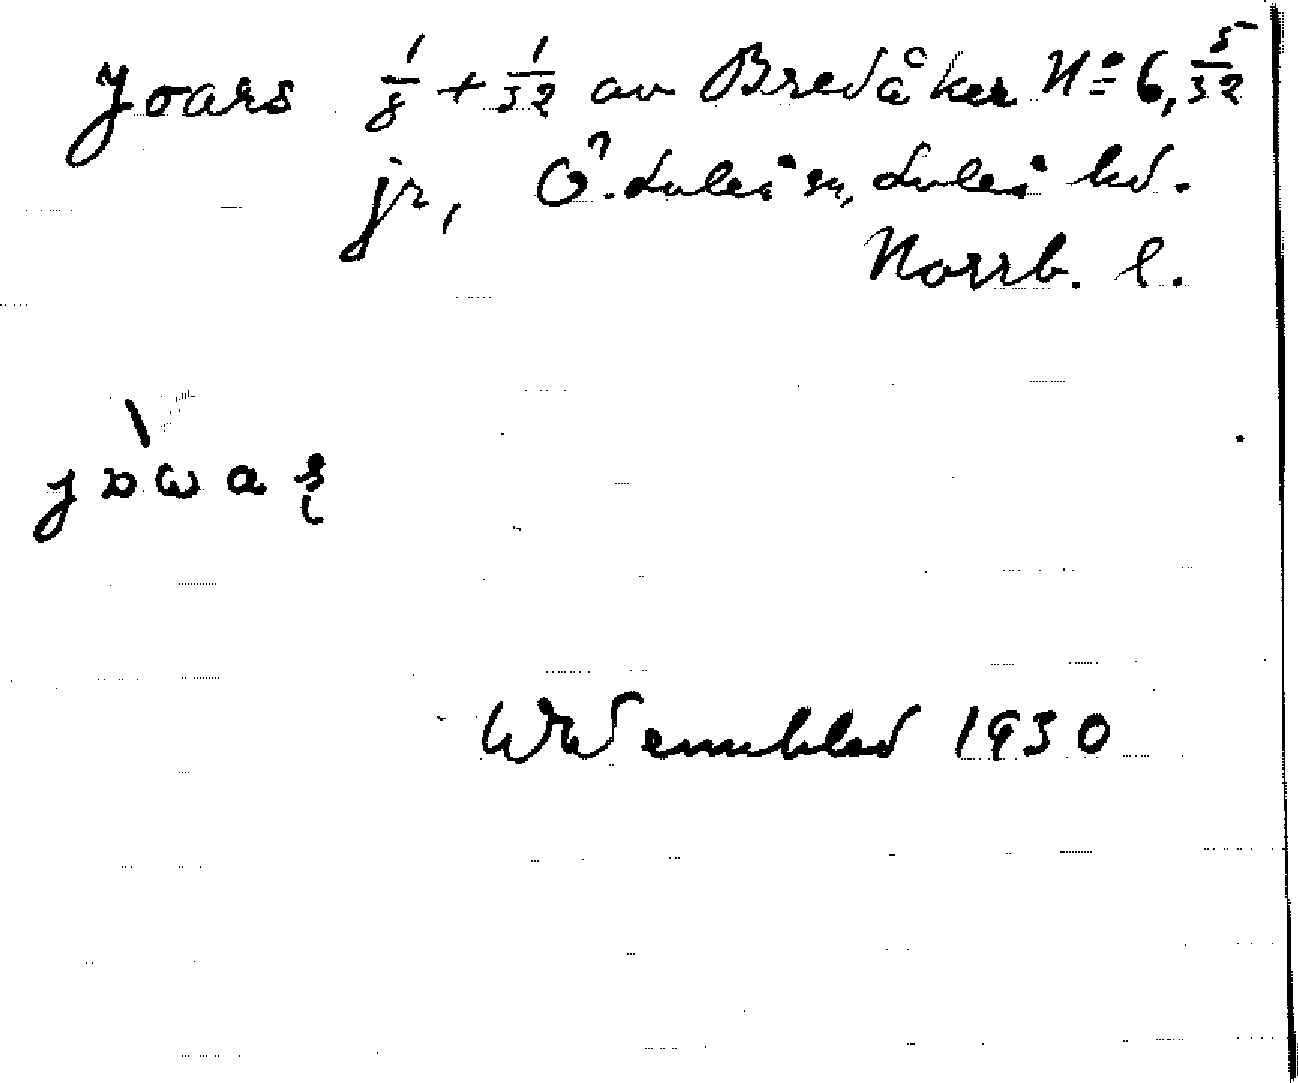 Joars 1/8 + 1/32 av Bredåker Nº 6, 5/32
jr, Ö. Luleå sn, Luleå hd.
Norrb. l.
Wdennblad 1930